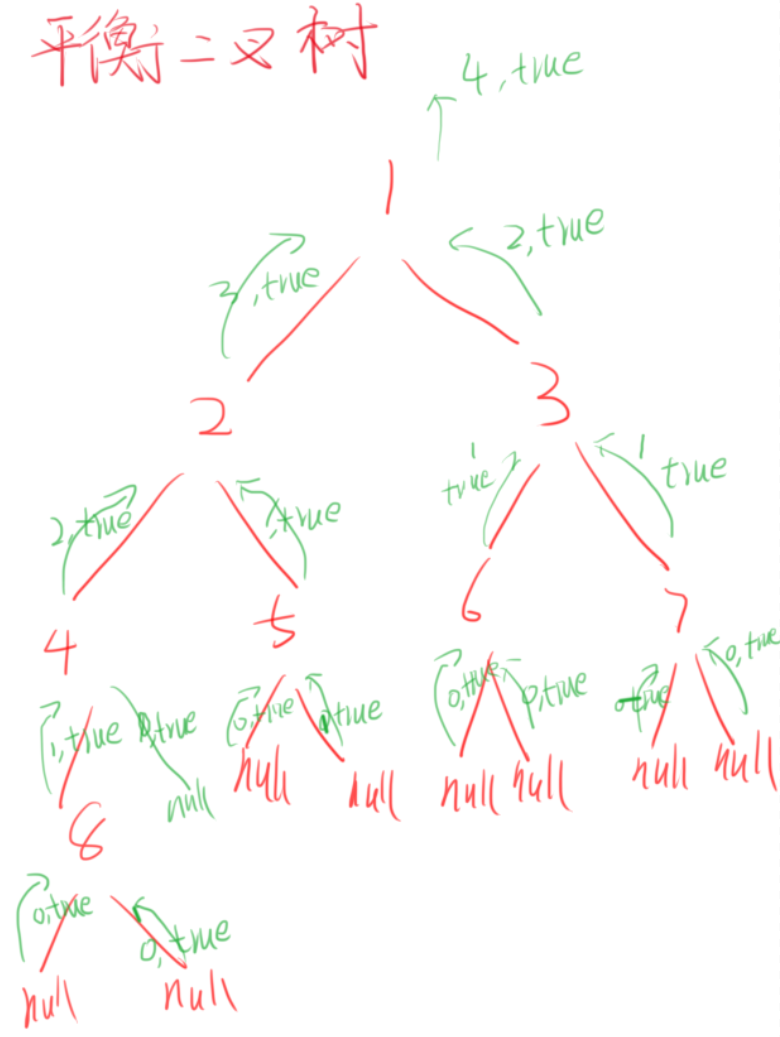 平衡二叉树
4,true
1
3,true
2,true
2
3
2,true
1,true
1
true
1
true
4
5
6
7
1,true
0,true
0,true
0,true
0,true
0,true
0,true
0,true
null
null
null
null
null
null
null
8
0,true
0,true
null
null